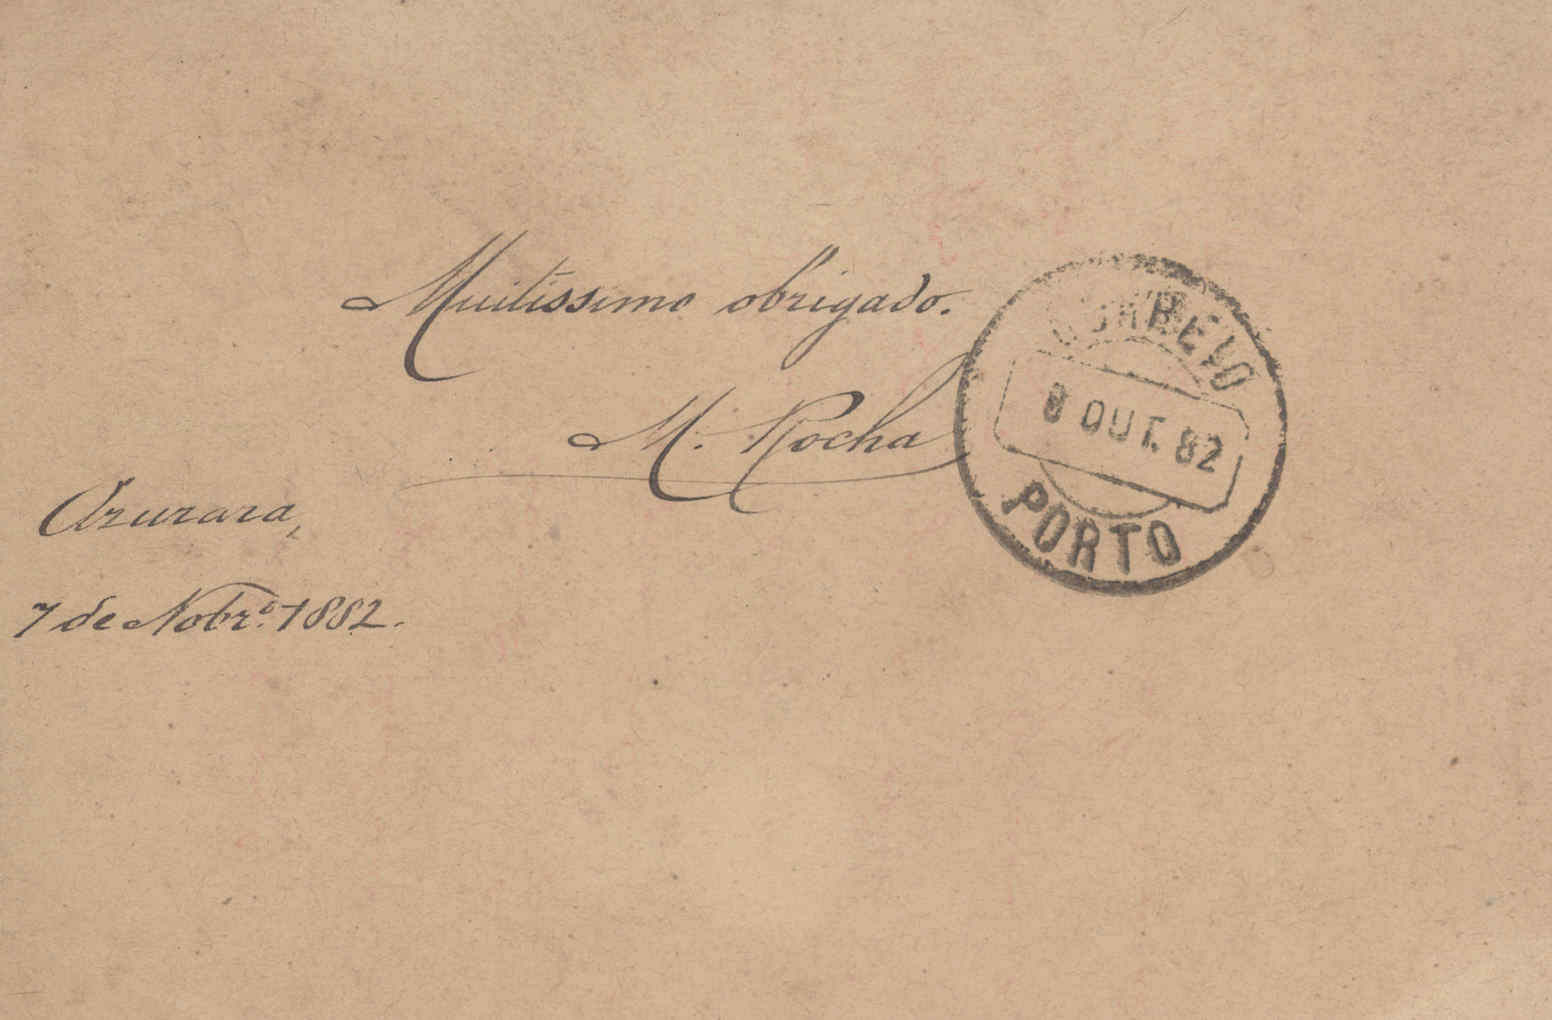 Muitissimo obrigado.
M. Rocha
Azurara,
7 de Nobr.º 1882.
CORREIO
8 OUT. 82
PORTO